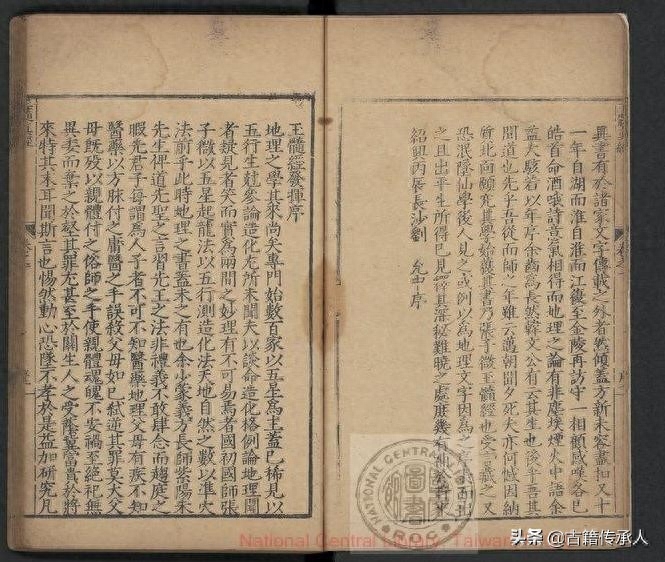 異書有於諸家文字傳載之外者然傾蓋方新未容盡扣又十
一年自湖而淮自淮而江復至金陵再訪守一相顧感喟各已
皓首命酒哦詩意氣相得而地理之論有非塵埃煙火中語余
益大駭若以年序余齒為長然韓文公有云其生也後乎吾其
聞道也先乎吾從而師之年雖云邁朝聞夕死夫亦何憾因納
贄北向願究其學始獲其書乃張子微玉髓經也受言藏之又
恐泯陰仙學後人見之或例以為地理文字因為之
之且出平生所得已見
紹興丙辰長沙劉 允中 序
玉髓經發揮序
地理之學其來尚矣專門始數百家以五星為主蓋已稀見以
五行生尅參論造化尤所未聞夫以談命造化格例論地理聞
者疑見者笑而實為兩間之妙理有不可易焉者國初國師張
子微以五星起龍法以五行測造化法天地自然之數以準穴
法前乎此時地理之書蓋未之有也余少蒙義方長師紫陽朱
先生俾道先聖之言習先王之法非禮義不敢肆念而趨庭之
暇先君子每謂為人子者不可不知醫藥地理父母有疾不知
醫藥以方脉付之庸醫之手誤殺父母如已弒逆其罪莫大父
母既歿以親體付之俗師之手使親體魂魄不安禍至絕祀無
異委而棄之於壑其罪尤甚至於關生人之受蔭冀富貴於將
來特其末耳聞斯言也惕然動心恐墜不孝於是益加研究凡
National Central Library, Taiwan
NATIONAL CENTRAL LIBRARY
頭条 @古籍传承人